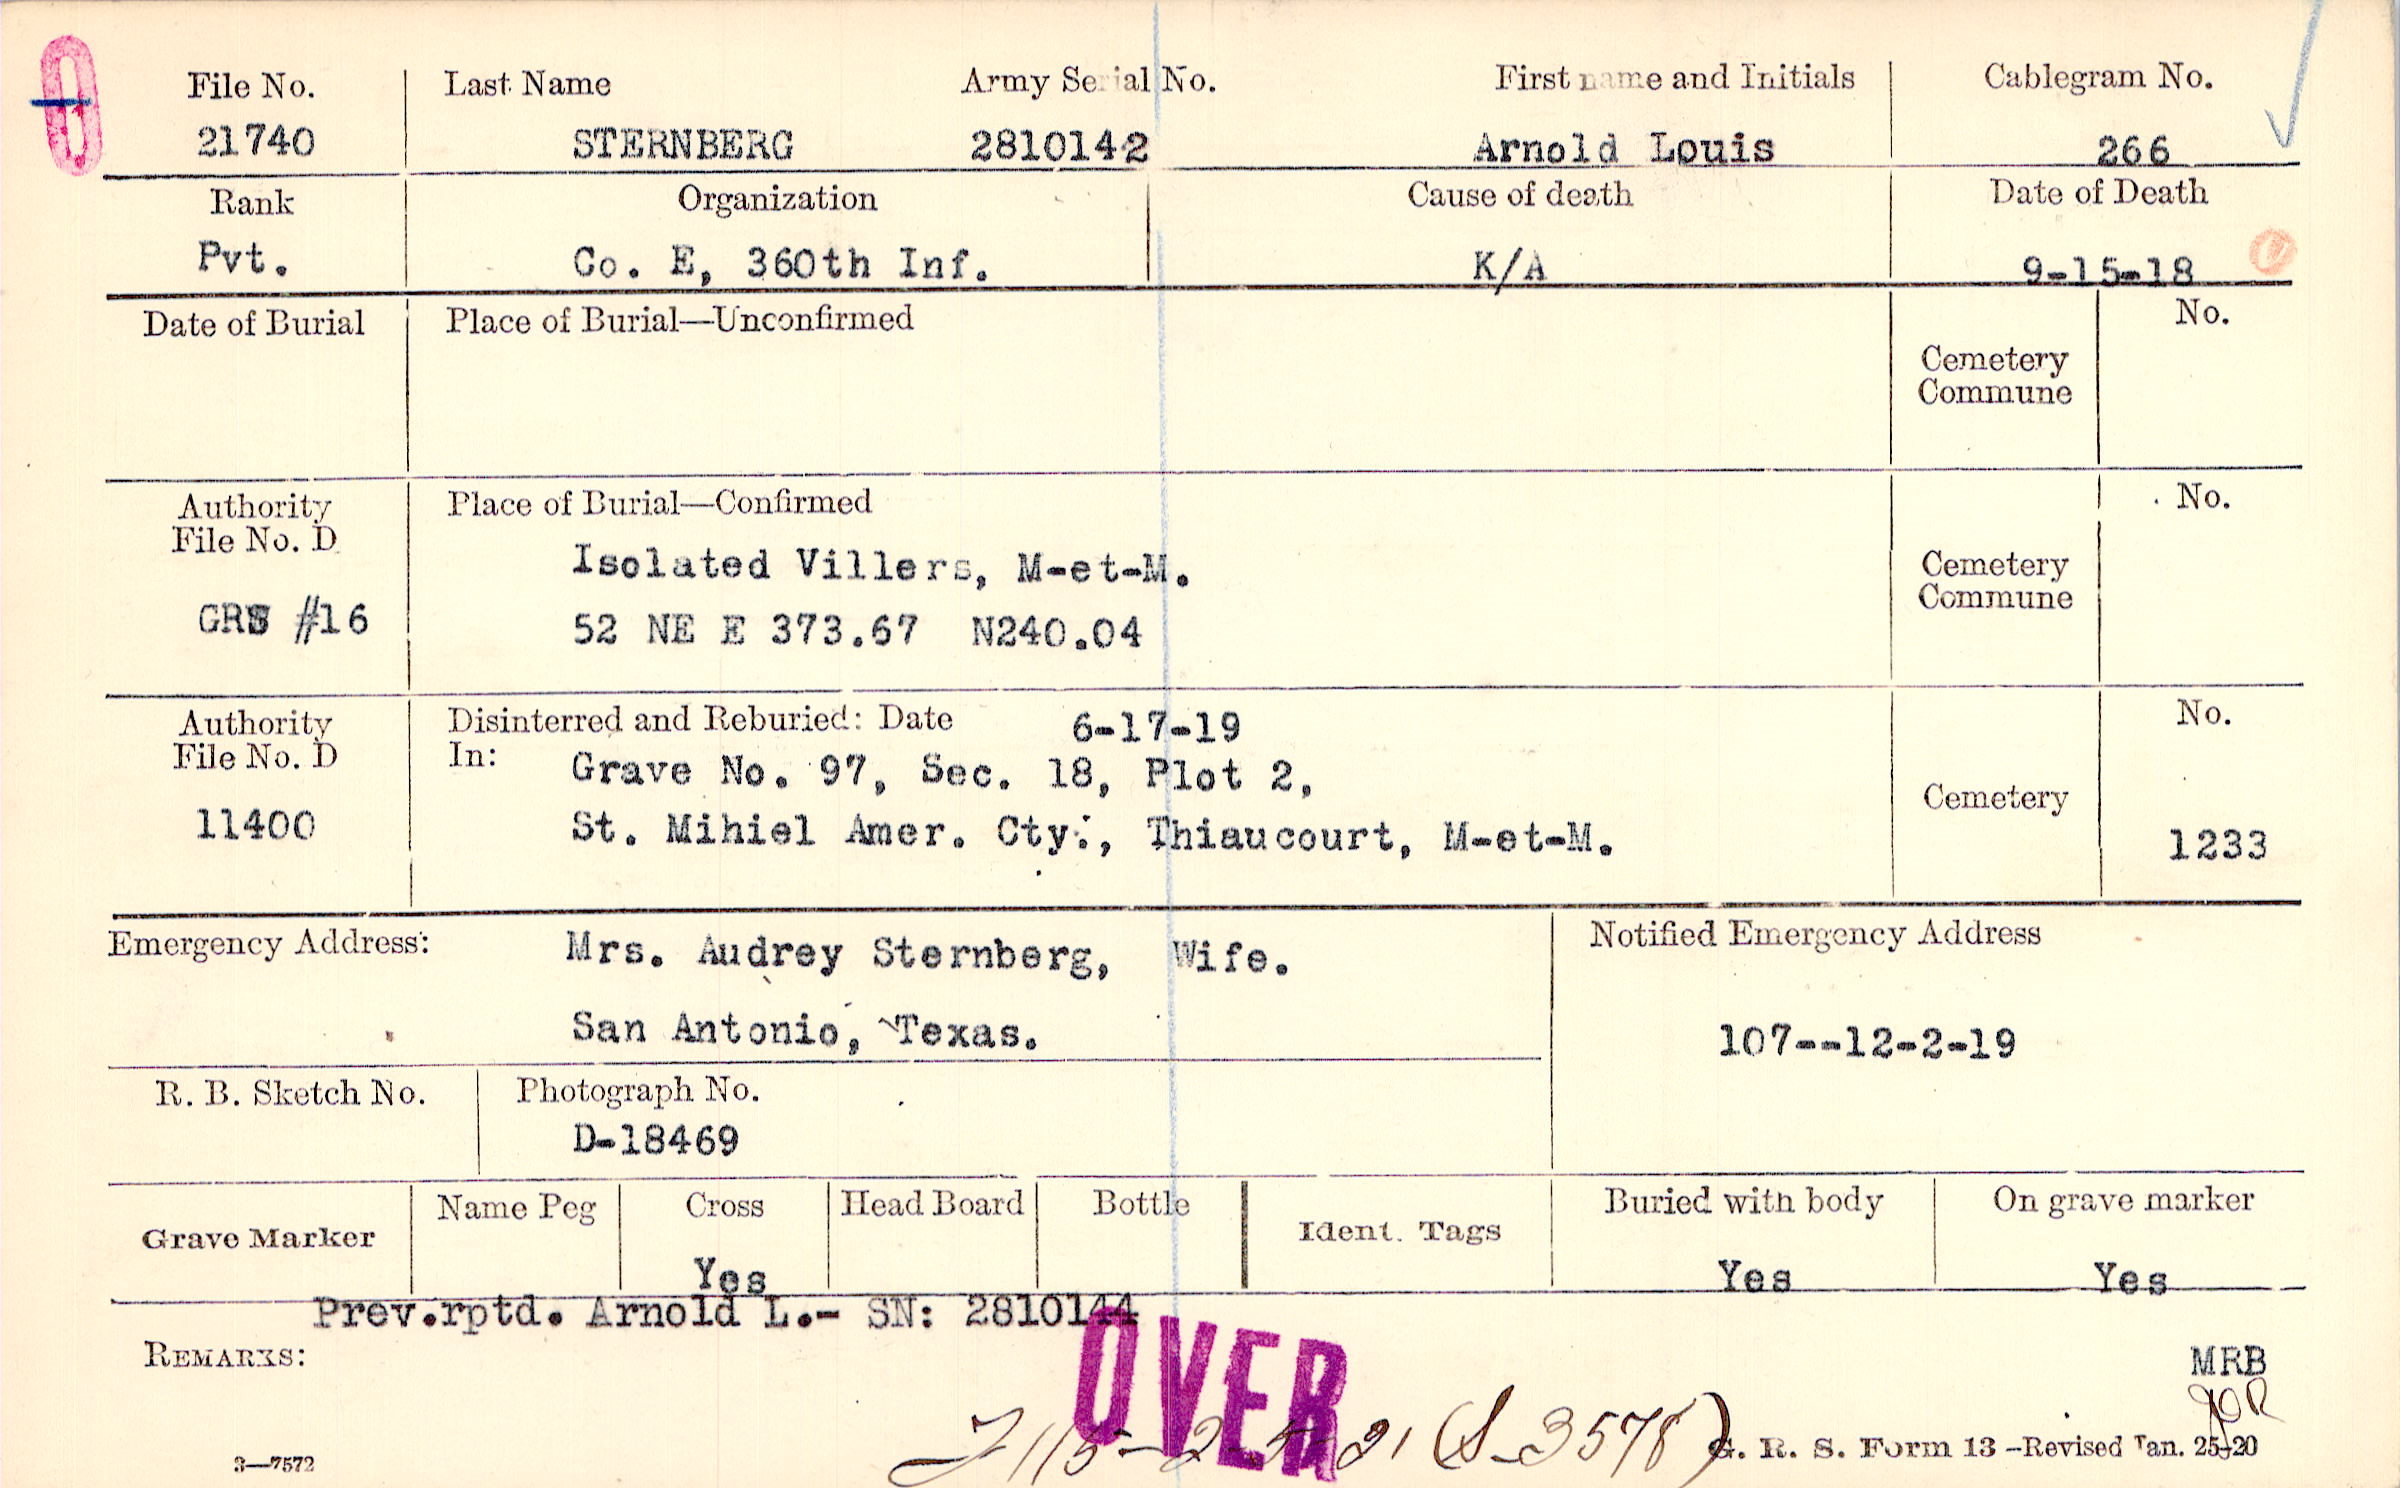 File No. Last Name Army Serial No. First name and Initials Cablegram No.
21740 STERNBERG 2810142 Arnold Louis 266
Rank Organization Cause of death Date of Death
Pvt. Co. E, 360th Inf. K/A 9-15-18
Date of Burial Place of Burial—Unconfirmed No.
Cemetery
Commune
Authority Place of Burial—Confirmed No.
File No. D
Isolated Villers, M-et-M. Cemetery
Commune
GRS #16 52 NE E 373.67 N240.04
Authority Disinterred and Reburied: Date 6-17-19 No.
File No. D In: Grave No. 97, Sec. 18, Plot 2,
Cemetery
11400 St. Mihiel Amer. Cty., Thiaucourt, M-et-M. 1233
Emergency Address: Mrs. Audrey Sternberg, Wife. Notified Emergency Address
San Antonio, Texas. 107--12-2-19
R. B. Sketch No. Photograph No.
D-18469
Name Peg Cross Head Board Bottle Buried with body On grave marker
Grave Marker Ident. Tags
Yes Yes Yes
Prev.rptd. Arnold L.- SN: 2810144
OVER
REMARKS: MRB
(S-3578)
3—7572 G. R. S. Form 13—Revised Jan. 25-20